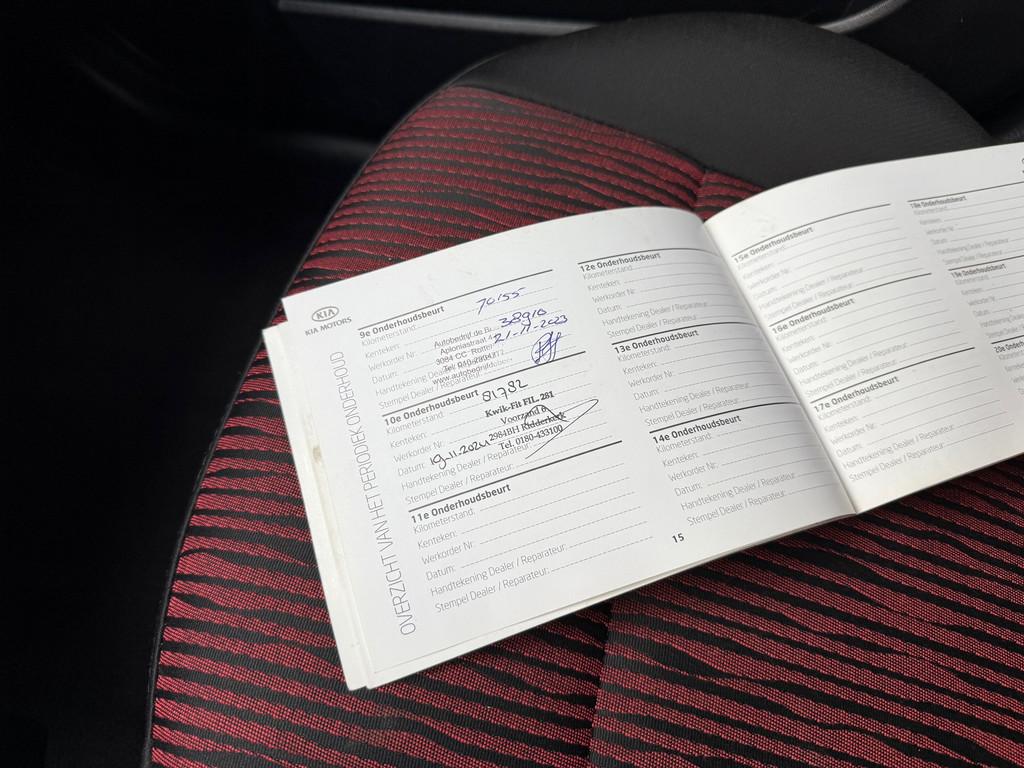 KIA
KIA MOTORS
OVERZICHT VAN HET PERIODIEK ONDERHOUD
9e Onderhoudsbeurt
Kilometerstand: 70155
Kenteken:
Werkorder Nr: 38910
Datum: 21-11-2023
Handtekening Dealer / Reparateur:
Stempel Dealer / Reparateur:
Autobedrijf de B
Aploniastraat
3084 CC Rotter
10e Onderhoudsbeurt
Kilometerstand: 81782
Kenteken:
Werkorder Nr:
Datum: 19-11-2024
Handtekening Dealer / Reparateur:
Stempel Dealer / Reparateur:
Kwik-Fit FIL. 281
Voorzand 6
2984BH Ridderkerk
Tel. 0180-433100
11e Onderhoudsbeurt
Kilometerstand:
Kenteken:
Werkorder Nr:
Datum:
Handtekening Dealer / Reparateur:
Stempel Dealer / Reparateur:
12e Onderhoudsbeurt
Kilometerstand:
Kenteken:
Werkorder Nr:
Datum:
Handtekening Dealer / Reparateur:
Stempel Dealer / Reparateur:
13e Onderhoudsbeurt
Kilometerstand:
Kenteken:
Werkorder Nr:
Datum:
Handtekening Dealer / Reparateur:
Stempel Dealer / Reparateur:
14e Onderhoudsbeurt
Kilometerstand:
Kenteken:
Werkorder Nr:
Datum:
Handtekening Dealer / Reparateur:
Stempel Dealer / Reparateur:
15
15e Onderhoudsbeurt
Kilometerstand:
Kenteken:
Werkorder Nr:
Datum:
Handtekening Dealer / Reparateur:
Stempel Dealer / Reparateur:
16e Onderhoudsbeurt
Kilometerstand:
Kenteken:
Werkorder Nr:
Datum:
Handtekening Dealer / Reparateur:
Stempel Dealer / Reparateur:
17e Onderhoudsbeurt
Kilometerstand:
Kenteken:
Werkorder Nr:
Datum:
Handtekening Dealer / Reparateur:
Stempel Dealer / Reparateur:
18e Onderhoudsbeurt
Kilometerstand:
Kenteken:
Werkorder Nr:
Datum:
Handtekening Dealer / Reparateur:
Stempel Dealer / Reparateur:
19e Onderhoudsbeurt
Kilometerstand:
Kenteken:
Werkorder Nr:
Datum:
Handtekening Dealer / Reparateur:
Stempel Dealer / Reparateur:
20e Onderhoudsbeurt